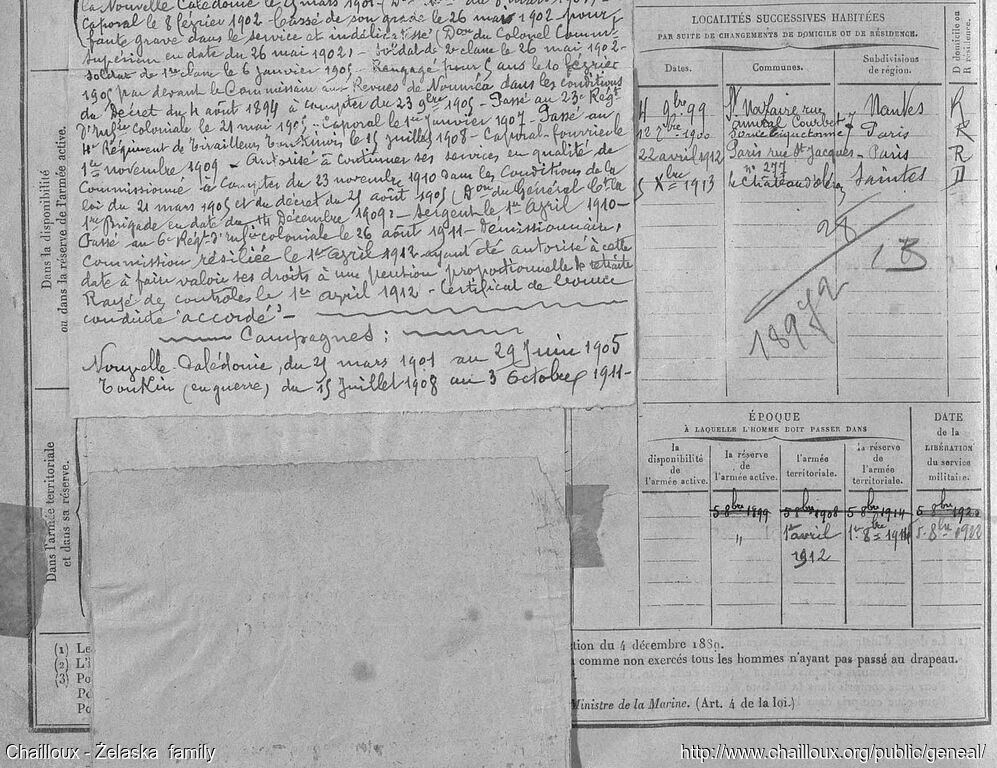 la Nouvelle Calédonie le 21 mars 1901
Caporal le 8 février 1902 - Cassé de son grade le 26 mars 1902 - pour
faute grave dans le service et indélicatesse (Don du Colonel Comm
Supérieur en date du 26 mai 1902) - Soldat de 2e classe le 26 mai 1902 -
Soldat de 1re classe le 6 janvier 1905 - Rengagé pour 5 ans le 10 février
1905 par devant le Commissaire aux Revues de Nouméa dans les conditions
du Décret du 4 août 1894 à compter du 23 9bre 1905 - Passé au 23e Régt
d'Infie coloniale le 21 mai 1905 - Caporal le 1er Janvier 1907 - Passé au
4e Régiment de Tirailleurs Tonkinois le 15 juillet 1908 - Caporal-fourrier le
1er novembre 1909 - Autorisé à continuer ses services en qualité de
Commissionné à compter du 23 novembre 1910 dans les Conditions de la
loi du 21 mars 1905 et du décret du 25 août 1905 (Don du Général Ct la
1re Brigade en date du 14 Décembre 1909 - Sergent le 1er Avril 1910 -
Passé au 6e Régt d'Infie coloniale le 26 août 1911 - Démissionnaire,
Commission résiliée le 1er avril 1912 - ayant été autorisé à cette
date à faire valoir ses droits à une pention proportionnelle de retraite
Rayé des contrôles le 1er avril 1912 - Certificat de bonne
conduite "accordé" -
Campagnes :
Nouvelle-Calédonie, du 21 mars 1901 au 29 Juin 1905
Tonkin (en guerre) du 15 Juillet 1908 au 3 Octobre 1911 -
Dans la disponibilité
ou dans la réserve de l'armée active.
Dans l'armée territoriale
et dans sa réserve.
LOCALITÉS SUCCESSIVES HABITÉES
PAR SUITE DE CHANGEMENTS DE DOMICILE OU DE RÉSIDENCE.
Dates. Communes. Subdivisions de région. D domicile ou R résidence.
4 9bre 99 St Nazaire rue amiral Courbet 7 Nantes R
1900 Paris R
22 avril 1912 Paris rue St Jacques - Paris R
n° 277
5 Xbre 1913 le Château d'Oléron Saintes D
28
13
1897
ÉPOQUE
À LAQUELLE L'HOMME DOIT PASSER DANS
DATE
de la
LIBÉRATION
du service
militaire.
la disponibilité de l'armée active.
la réserve de l'armée active.
l'armée territoriale.
la réserve de l'armée territoriale.
5 8bre 1899 5 8bre 1908 5 8bre 1914 5 8bre 1920
" 1er avril 1912 1er 8bre 1914 5 8bre 1922
(1) Le
(2) L'I
(3) Po
Po
Po
tion du 4 décembre 1889.
comme non exercés tous les hommes n'ayant pas passé au drapeau.
Ministre de la Marine. (Art. 4 de la loi.)
Chailloux - Żelaska family
http://www.chailloux.org/public/geneal/